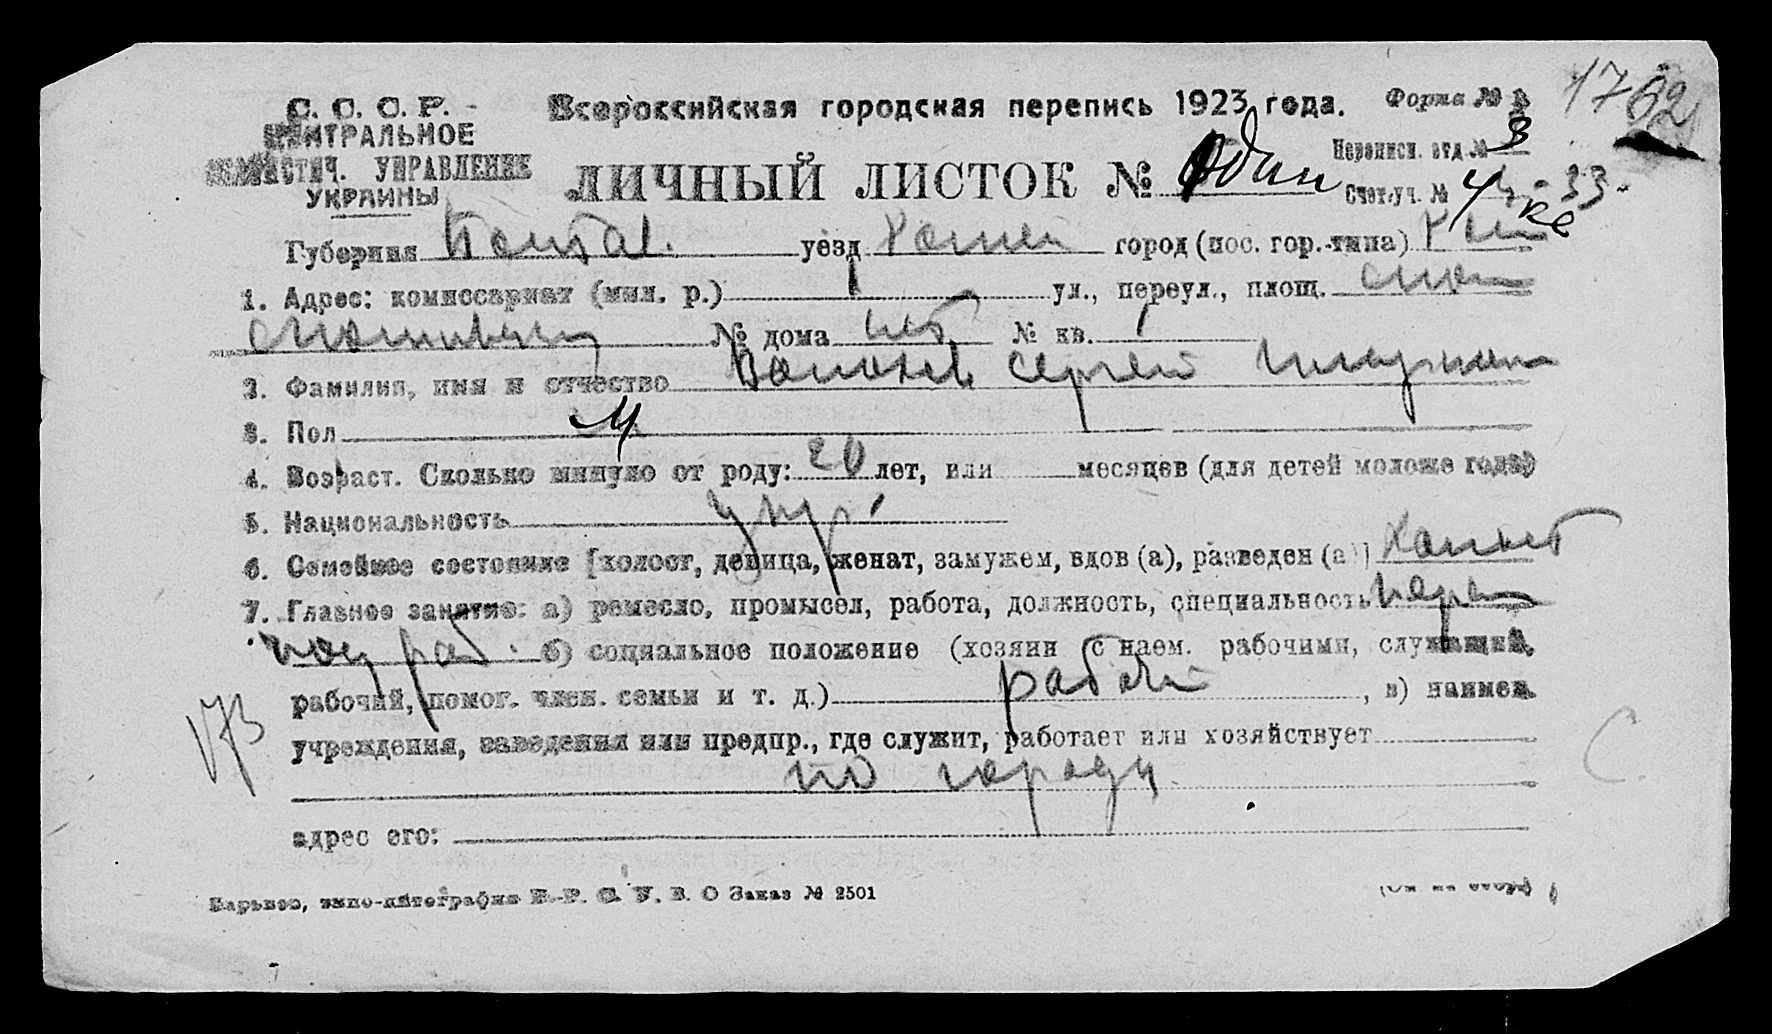 С. С. С. Р.
ЦЕНТРАЛЬНОЕ
СТАТИСТИЧ. УПРАВЛЕНИЕ
УКРАИНЫ
Всероссийская городская перепись 1923 года.
Форма № 3
1762
ЛИЧНЫЙ ЛИСТОК № Один
Переписн. отд. № 3
Счет. уч. № 4
Губерния Полтав. уезд город (пос. гор.-типа)
1. Адрес: комиссариат (мил. р.) 1 ул., переул., площ.
№ дома нет № кв. 1
2. Фамилия, имя и отчество Сергей
3. Пол М
4. Возраст. Сколько минуло от роду: 20 лет, или месяцев (для детей моложе года)
5. Национальность укр.
6. Семейное состояние [холост, девица, женат, замужем, вдов (а), разведен (а)] Холост
7. Главное занятие: а) ремесло, промысел, работа, должность, специальность черно
раб. б) социальное положение (хозяин с наем. рабочими, служащий,
рабочий, помог. член. семьи и т. д.) рабочий, в) наимен.
173
учреждения, заведения или предпр., где служит, работает или хозяйствует
по городу
С.
адрес его:
Харьков, типо-литография В.-Р. С. У. В. О Заказ № 2501